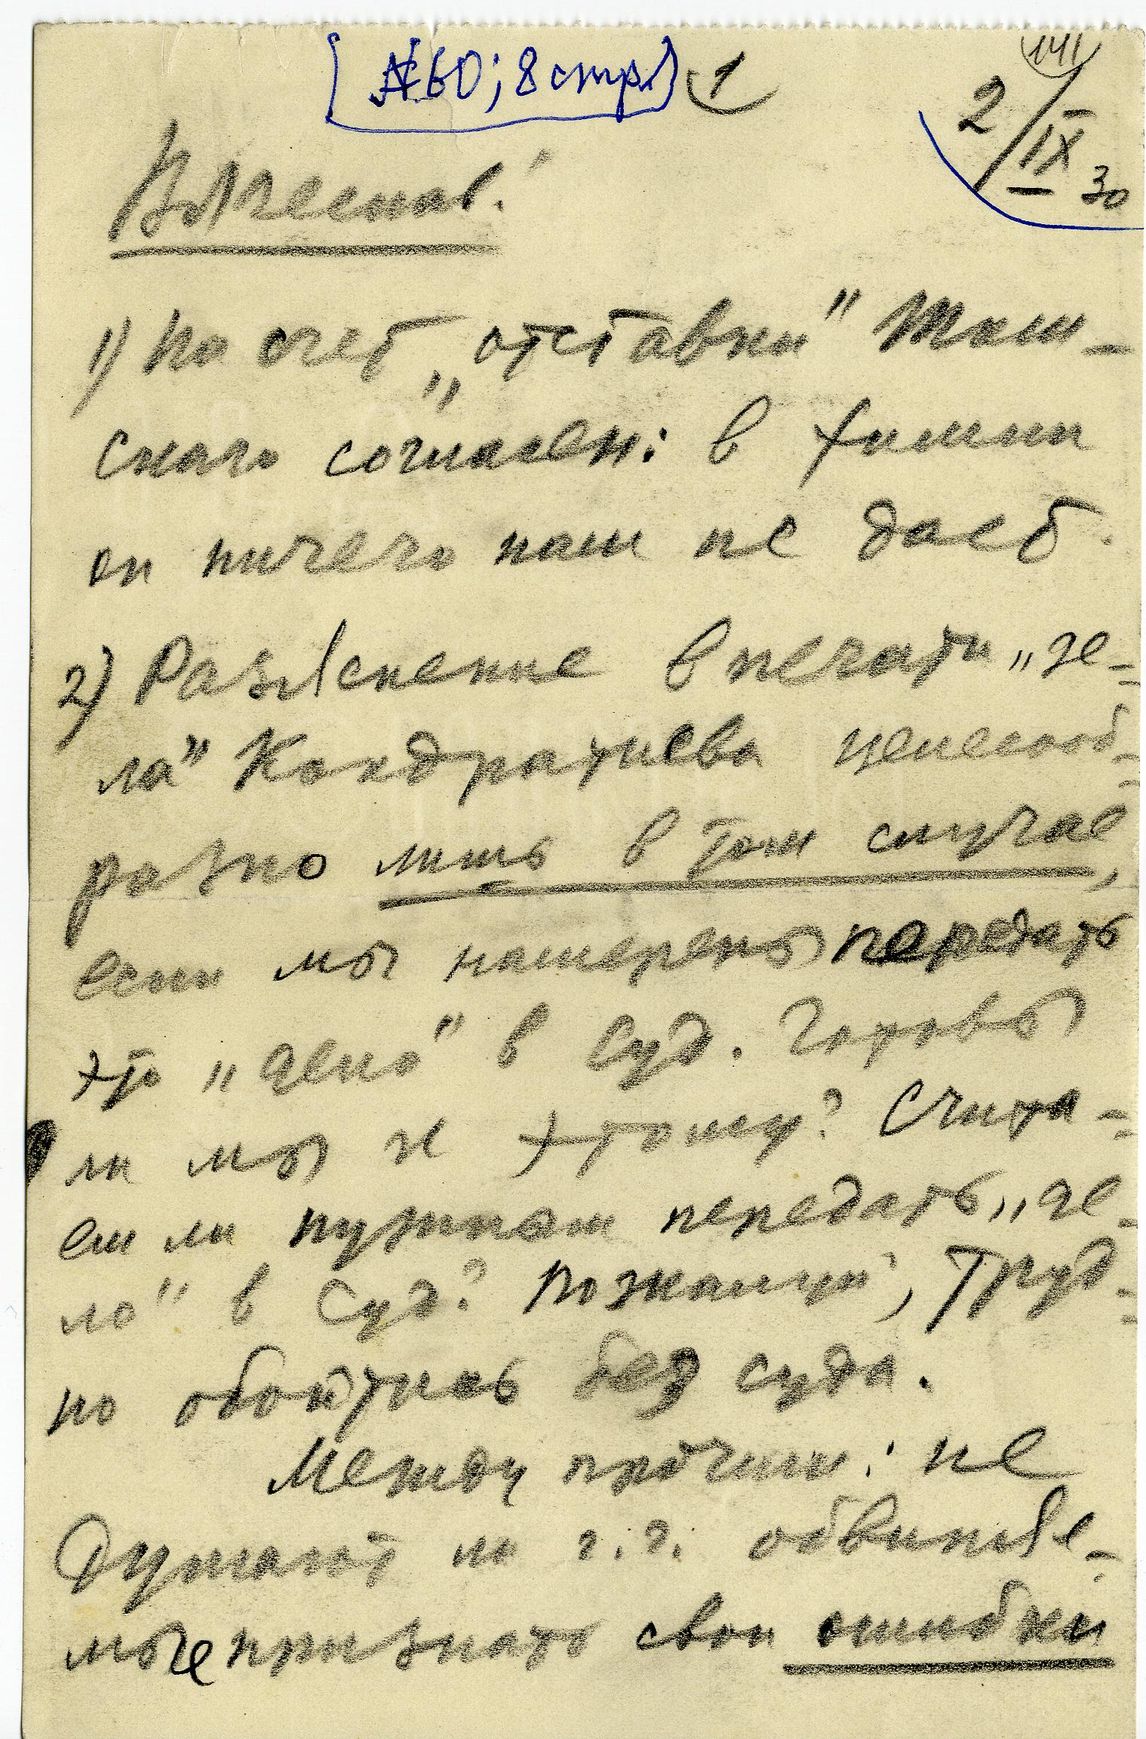 [№ 60; 8 стр.] 1
141
2/IX 30
Вячеслав!
1) На счет „отставки" Томск-
ского согласен: в химии
он ничего нам не дает.
2) Раз'яснение в печати „де-
ла" Кондратьева целесооб-
разно лишь в том случае,
если мы намерены передать
это „дело" в суд. Готовы
ли мы к этому? Счита-
ем ли нужным передать „де-
ло" в суд? Пожалуй, труд-
но обойтись без суда.
Между прочим: не
думают ли г.г. обвиняе-
мые признать свои ошибки